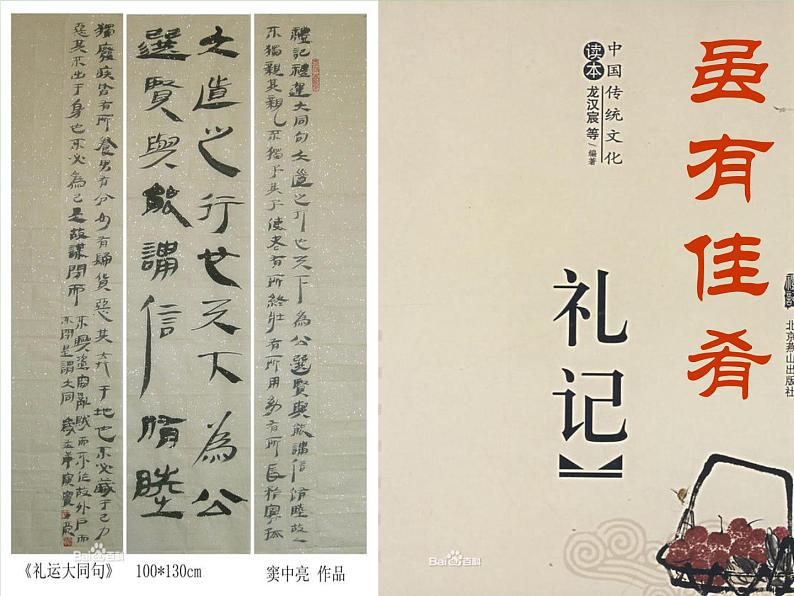 禮記禮運大同句大道之行也天下為公選賢與能講信脩睦故
不獨親其親不獨子其子使老有所終壯有所用幼有所長矜寡孤
大道之行也天下為公
選賢與能講信脩睦
獨廢疾皆有所養男有分女有歸貨惡其弃于地也不必藏于己力
惡其不出于身也不必為己是故謀閉而
不興盜竊亂賊而不作故外戶而
不閉是謂大同
《礼运大同句》 100*130cm 窦中亮 作品
Bai百科
虽有佳肴
中国传统文化
读本
龙汉宸 等/编著
礼记
北京燕山出版社
Bai百科